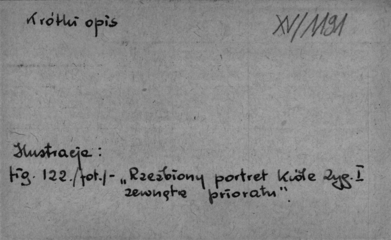 Krótki opis
XV/1191
Ilustracje :
fig. 122./fot./- „Rzeźbiony portret Króla Zyg. I
zewnątrz prioratu".